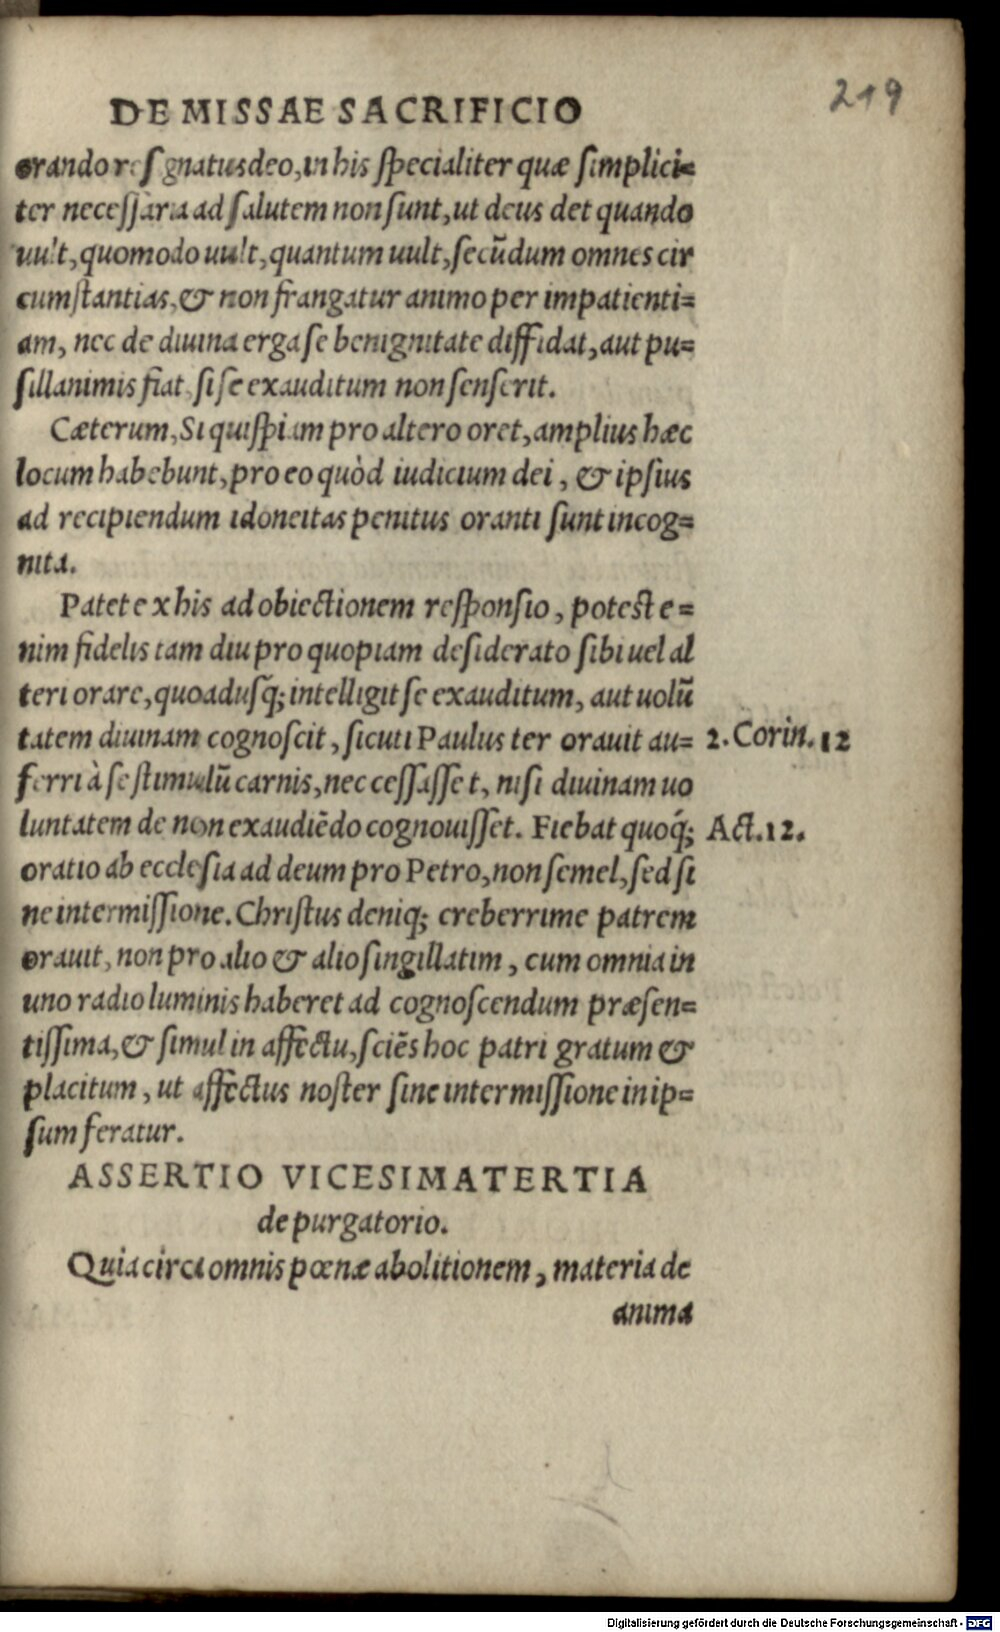 219
DE MISSAE SACRIFICIO
orando resignatus deo, in his specialiter quæ simplici=
ter necessaria ad salutem non sunt, ut deus det quando
uult, quomodo uult, quantum uult, secũdum omnes cir
cumstantias, & non frangatur animo per impatienti=
am, nec de diuina erga se benignitate diffidat, aut pu=
sillanimis fiat, si se exauditum non senserit.
Cæterum, Si quispiam pro altero oret, amplius hæc
locum habebunt, pro eo quòd iudicium dei, & ipsius
ad recipiendum idoneitas penitus oranti sunt incog=
nita.
Patet ex his ad obiectionem responsio, potest e=
nim fidelis tam diu pro quopiam desiderato sibi uel al
teri orare, quoadusq; intelligit se exauditum, aut uolũ
tatem diuinam cognoscit, sicuti Paulus ter orauit au= 2. Corin. 12
ferri à se stimulũ carnis, nec cessasset, nisi diuinam uo
luntatem de non exaudiẽdo cognouisset. Fiebat quoq́; Act. 12.
oratio ab ecclesia ad deum pro Petro, non semel, sed si
ne intermissione. Christus deniq; creberrime patrem
orauit, non pro alio & alio singillatim, cum omnia in
uno radio luminis haberet ad cognoscendum præsen=
tissima, & simul in affectu, sciẽs hoc patri gratum &
placitum, ut affectus noster sine intermissione in ip=
sum feratur.
ASSERTIO VICESIMATERTIA
de purgatorio.
Quia circa omnis pœnæ abolitionem, materia de
anima
Digitalisierung gefördert durch die Deutsche Forschungsgemeinschaft - DFG